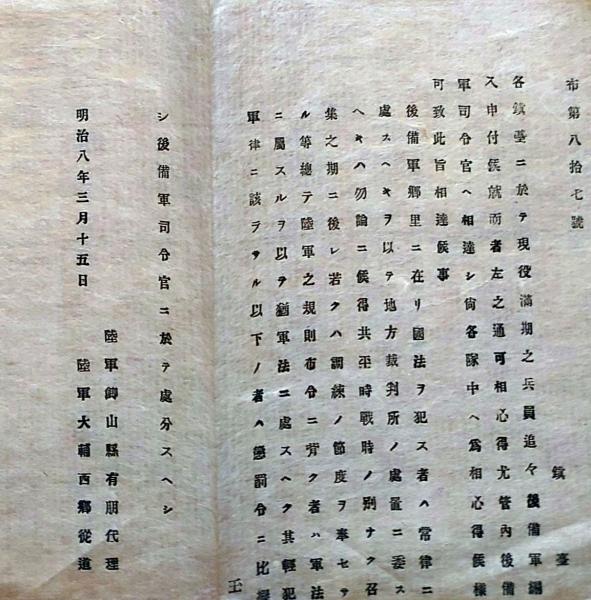 布第八拾七號
鎮臺
各鎮臺ニ於テ現役滿期之兵員追々後備軍編
入申付候就而者左之通可相心得尤管内後備
軍司令官ヘ相達シ尙各隊中ヘ為相心得候樣
可致此旨相達候事
後備軍鄕里ニ在リ國法ヲ犯ス者ハ常律ニ
處スヘキヲ以テ地方裁判所ノ處置ニ委ス
ヘキハ勿論ニ候得共平時戰時ノ別ナク召
集之期ニ後レ若クハ調練ノ節度ヲ奉セサ
ル等總テ陸軍之規則布令ニ背ク者ハ軍法
ニ屬スルヲ以テ猶軍法ニ處スヘク其輕犯
軍律ニ該ラサル以下ノ者ハ懲罰令ニ比
シ後備軍司令官ニ於テ處分スヘシ
明治八年三月十五日
陸軍卿山縣有朋代理
陸軍大輔西鄕從道